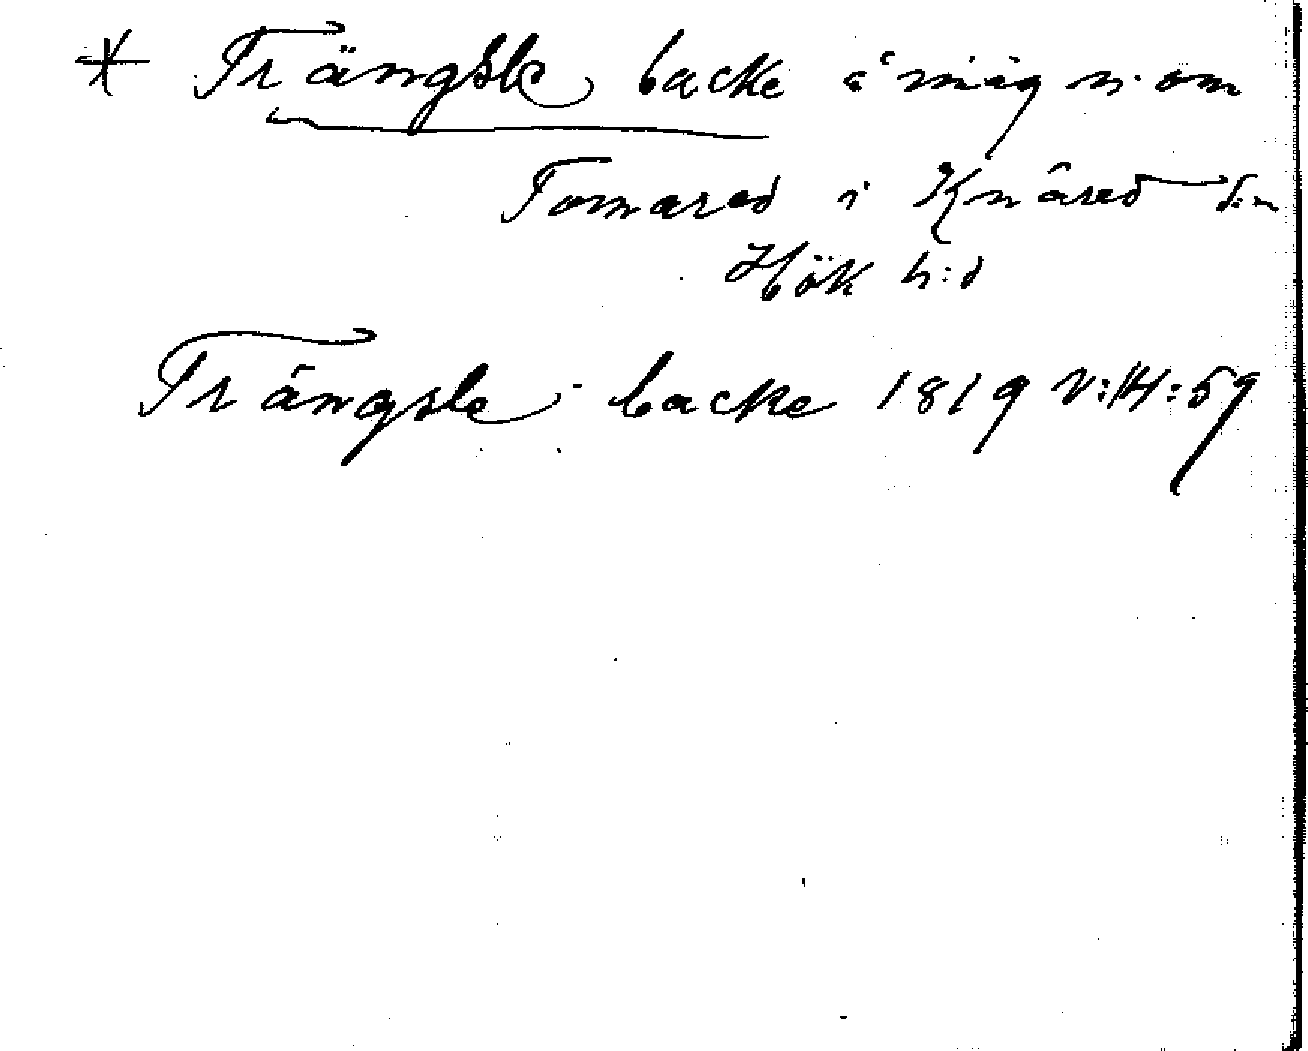 * Trängsle backe å mig n. om
Tomared i Knäred s:n
Hök h:d
Trängsle-backe 1819 V:14:59